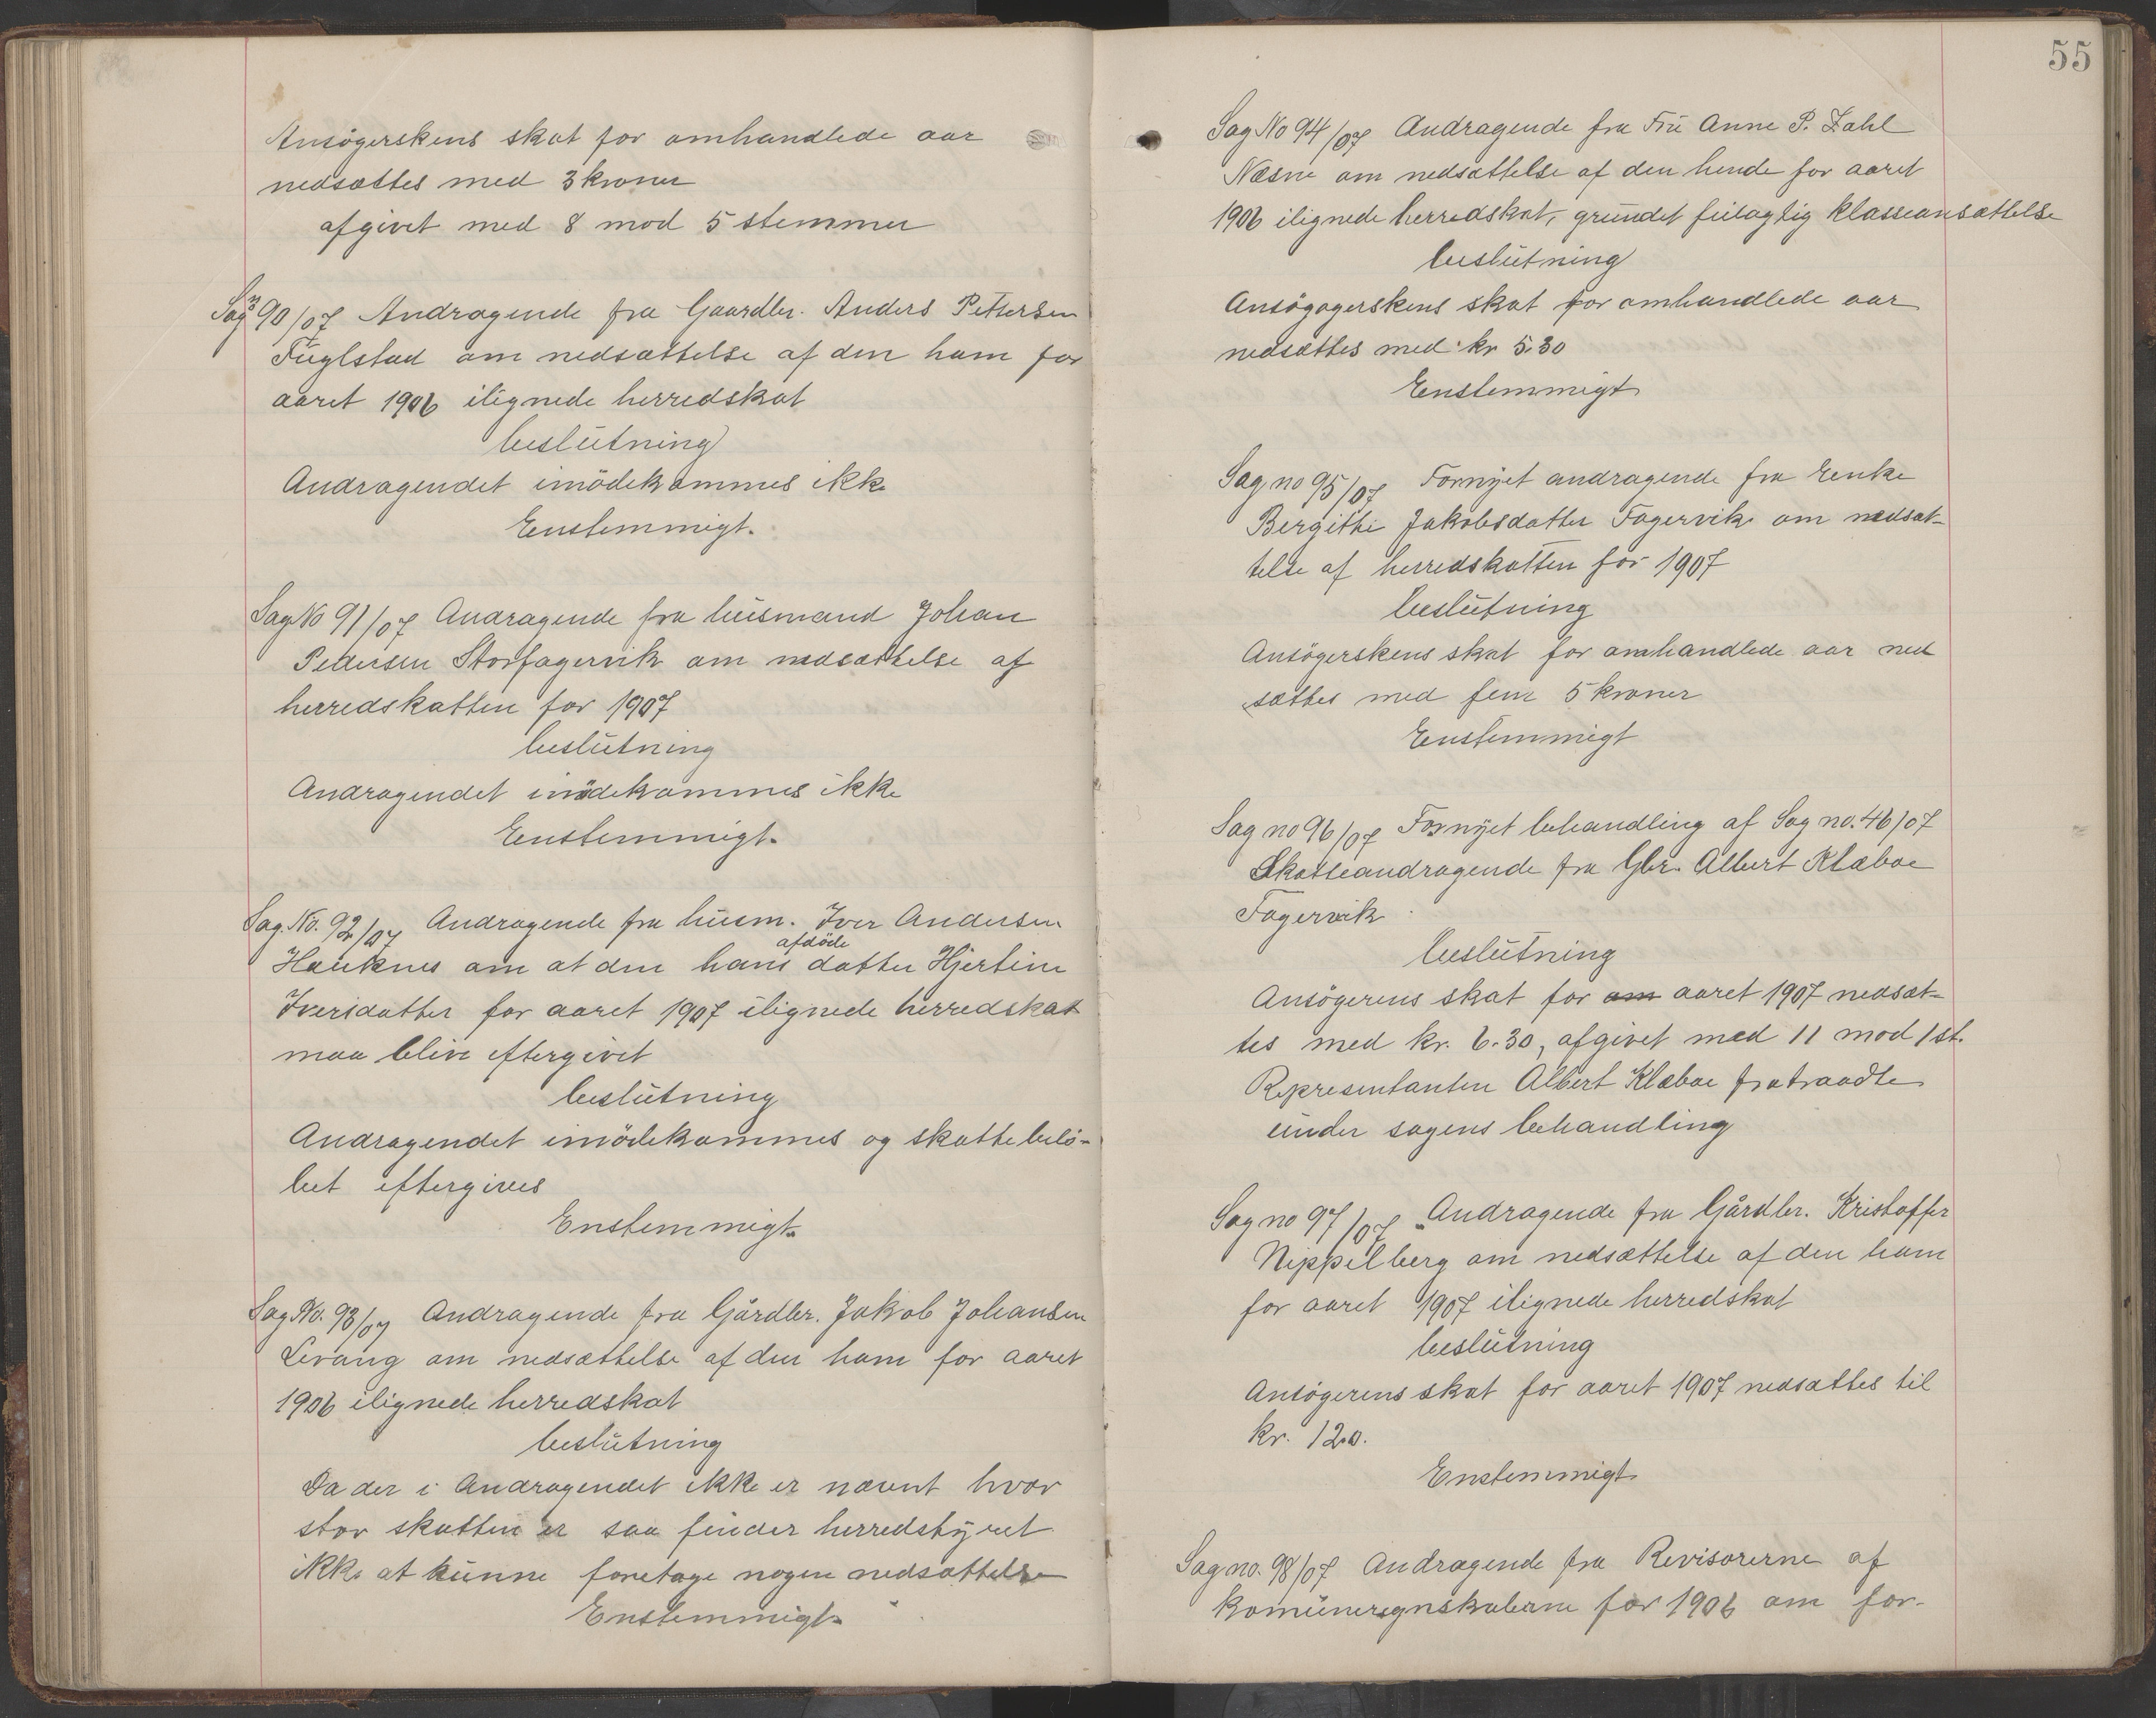 Ansøgerskens skat for omhandlede aar
nedsættes med 3 kroner
afgivet med 8 mod 5 stemmer
Sag no 90/07 Andragende fra Gaardbr. Anders Pettersen
Fuglstad om nedsættelse af den ham for
aaret 1906 ilignede herredskat
beslutning
Andragendet imødekommes ikke
Enstemmigt.
Sag No 91/07 Andragende fra husmand Johan
Pedersen Storfagervik om nedsættelse af
herredskatten for 1907
beslutning
Andragendet imødekommes ikke
Enstemmigt.
Sag. No. 92/07 Andragende fra husm. Iver Andersen
Hauknes om at den hans afdøde datter Hjertine
Iversdatter for aaret 1907 ilignede herredskat
maa blive eftergivet
beslutning
Andragendet imødekommes og skattebelø-
bet eftergives
Enstemmigt.
Sag No. 93/07 Andragende fra Gårdbr. Jakob Johansen
Levang om nedsættelse af den ham for aaret
1906 ilignede herredskat
beslutning
Da der i Andragendet ikke er nævnt hvor
stor skatten er saa finder herredstyret
ikke at kunne foretage nogen nedsættelse
Enstemmigt.
55
Sag No 94/07 Andragende fra Fru Anne P. Zahl
Næsne om nedsættelse af den hende for aaret
1906 ilignede herredskat, grundet feilagtig klasseansættelse
beslutning
Ansøgogerskens skat for omhandlede aar
nedsættes med kr 5.30
Enstemmigt
Sag no 95/07 Fornyet andragende fra Enke
Bergithe Jakobsdatter Fagervik om nedsæt-
telse af herredskatten for 1907
beslutning
Ansøgerskens skat for omhandlede aar ned
sættes med fem 5 kroner
Enstemmigt
Sag no 96/07 Fornyet behandling af Sag no. 46/07
Skatteandragende fra Gbr. Albert Klæboe
Fagervik
beslutning
Ansøgerens skat for om aaret 1907 nedsæt-
tes med kr. 6.30, afgivet med 11 mod 1 st.
Representanten Albert Klæboe fratraadte
under sagens behandling
Sag no 97/07 Andragende fra Gårdbr. Kristoffer
Nippelberg om nedsættelse af den ham
for aaret 1907 ilignede herredskat
beslutning
Ansøgerens skat for aaret 1907 nedsættes til
kr. 12.0.
Enstemmigt
Sag no. 98/07 Andragende fra Revisorerne af
komuneregnskaberne for 1906 om for-